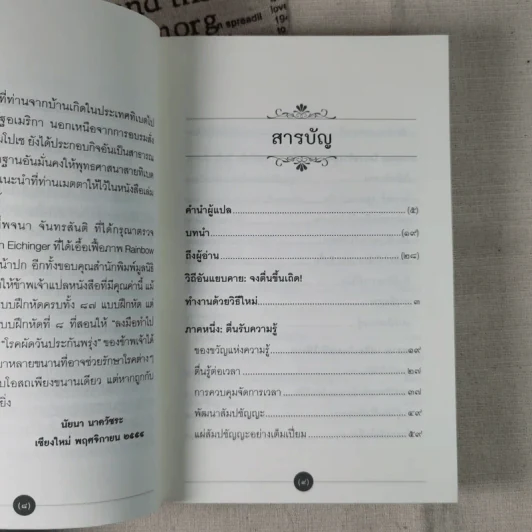 nd th
morg
n spreadin
love
194
ที่ท่านจากบ้านเกิดในประเทศทิเบตไป
ฐอเมริกา นอกเหนือจากการอบรมสั่ง
นโปเช ยังได้ประกอบกิจอันเป็นสาธารณ
ฐานอันมั่นคงให้พุทธศาสนาสายทิเบต
แนะนำที่ท่านเมตตาให้ไว้ในหนังสือเล่ม
พจนา จันทรสันติ ที่ได้กรุณาตรวจ
Eichinger ที่ได้เอื้อเฟื้อภาพ Rainbow
น้าปก อีกทั้งขอบคุณสำนักพิมพ์มูลนิธิ
ให้ข้าพเจ้าแปลหนังสือที่มีคุณค่านี้ แม้
แบบฝึกหัดครบทั้ง ๘๗ แบบฝึกหัด แต่
บบฝึกหัดที่ ๘ ที่สอนให้ "ลงมือทำไป
"โรคผัดวันประกันพรุ่ง" ของข้าพเจ้าได้
ยาหลายขนานที่อาจช่วยรักษาโรคต่างๆ
บโอสถเพียงขนานเดียว แต่หากถูกกับ
ยิ่ง
นัยนา นาควัชระ
เชียงใหม่ พฤศจิกายน ๒๕๕๕
(๘)
สารบัญ
คำนำผู้แปล (๕)
บทนำ (๑๙)
ถึงผู้อ่าน (๒๘)
วิถีอันแยบคาย: จงตื่นขึ้นเถิด!
ทำงานด้วยวิธีใหม่ ๓
ภาคหนึ่ง: ตื่นรับความรู้
ของขวัญแห่งความรู้ ๑๙
ตื่นรู้ต่อเวลา ๒๗
การควบคุมจัดการเวลา ๓๗
พัฒนาสัมปชัญญะ ๔๙
แผ่สัมปชัญญะอย่างเต็มเปี่ยม ๕๙
(๙)